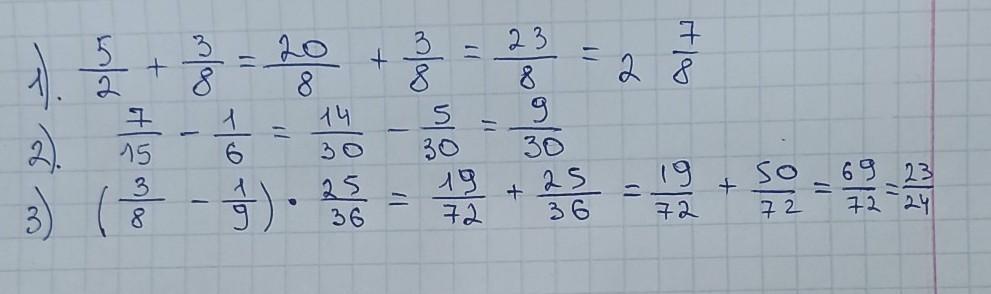 1). 5/2 + 3/8 = 20/8 + 3/8 = 23/8 = 2 7/8
2). 7/15 - 1/6 = 14/30 - 5/30 = 9/30
3) (3/8 - 1/9) · 25/36 = 19/72 + 25/36 = 19/72 + 50/72 = 69/72 = 23/24